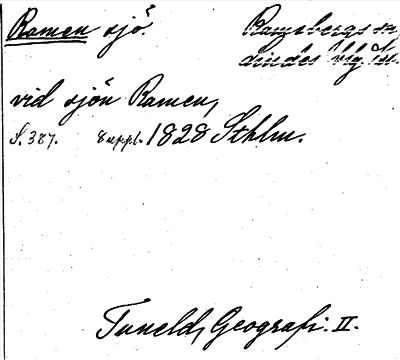 Ramen sjö
Ramsbergs sn
Lindes btg. Vstl.
vid sjön Ramen,
S. 387. 8 uppl. 1828 Sthlm.
Tuneld, Geografi. II.